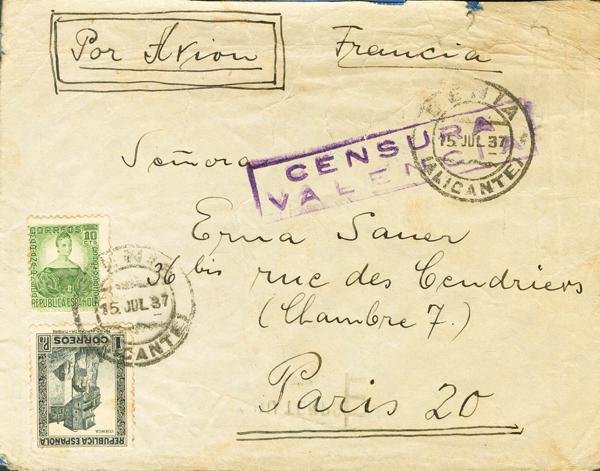 Por Avion
Francia
DENIA
15 JUL 37
(ALICANTE)
CENSURA
VALENCIA
Señora
Erna Sauer
36 bis rue des Cendriers
(Chambre 7.)
Paris 20
CORREOS
10
CTS
REPUBLICA ESPAÑOLA
DENIA
15 JUL 37
(ALICANTE)
1 PTA
CORREOS
CUENCA
REPUBLICA ESPAÑOLA